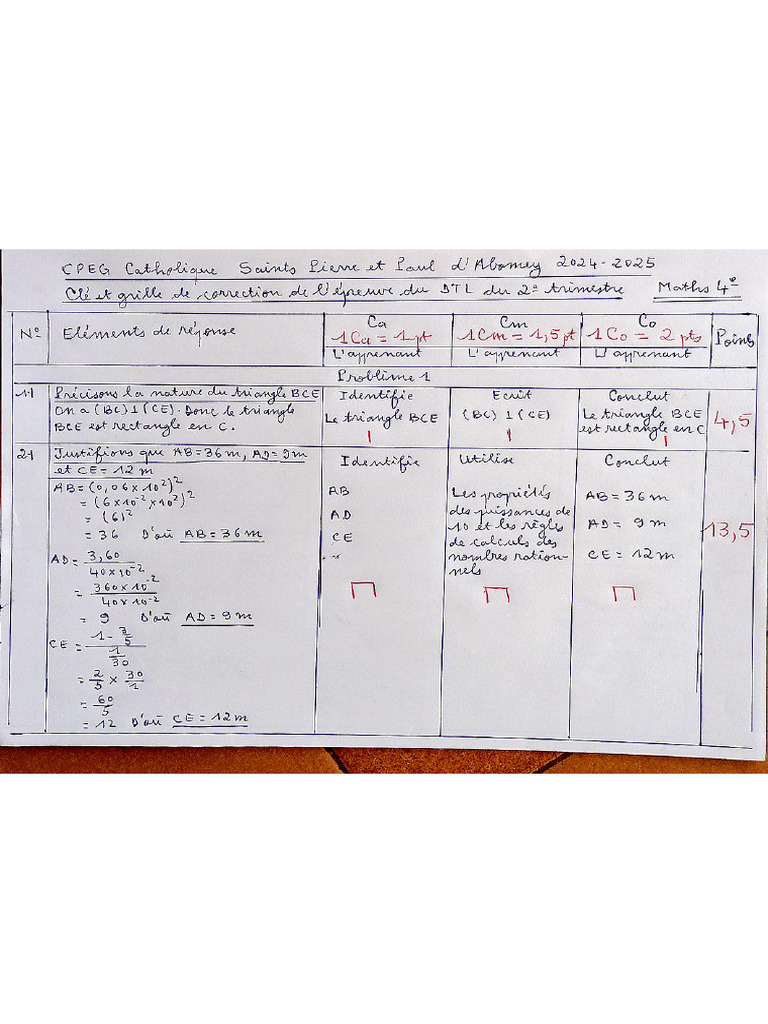 CPEG Catholique Saints Pierre et Paul d'Abomey 2024-2025
Clé et grille de correction de l'épreuve du DTL du 2e trimestre Maths 4e
N° Eléments de réponse Ca Cm Co Points
1Ca = 1pt 1Cm = 1,5pt 1Co = 2pts
L'apprenant L'apprenant L'apprenant
Problème 1
1-1 Précisons la nature du triangle BCE Identifie Ecrit Conclut
On a (BC)⊥(CE). Donc le triangle Le triangle BCE (BC)⊥(CE) Le triangle BCE 4,5
BCE est rectangle en C. est rectangle en C
2-1 Justifions que AB=36m, AD=9m Identifie Utilise Conclut
et CE=12m
AB=(0,06×10²)² AB Les propriétés AB=36m
=(6×10⁻²×10²)² des puissances de
=(6)² AD 10 et les règles AD=9m 13,5
=36 D'où AB=36m CE de calculs des CE=12m
AD=3,60/40×10⁻² " nombres ration-
nels
=360×10⁻²/40×10⁻²
=9 D'où AD=9m
CE=(1-3/5)/(1/30)
=2/5×30/1
=60/5
=12 D'où CE=12m